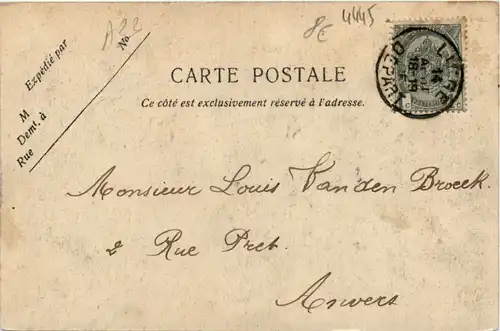 A22
8€ 4445
Expédié par
M
Demt. à
Rue
No
CARTE POSTALE
Ce côté est exclusivement réservé à l'adresse.
LIERRE
14
18-19
(DEPART)
Monsieur Louis Van den Broeck.
2 Rue Pret.
Anvers